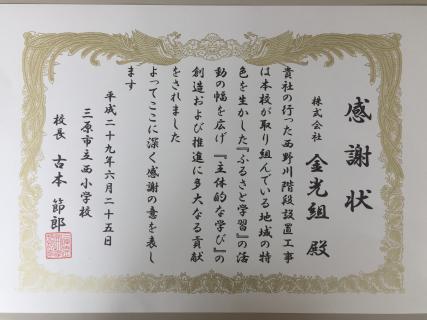 感謝状
株式会社 金光組 殿
貴社の行った西野川階段設置工事
は本校が取り組んでいる地域の特
色を生かした『ふるさと学習』の活
動の幅を広げ『主体的な学び』の
創造および推進に多大なる貢献
をされました
よってここに深く感謝の意を表し
ます
平成二十九年六月二十五日
三原市立西小学校
校長 古本 節郎